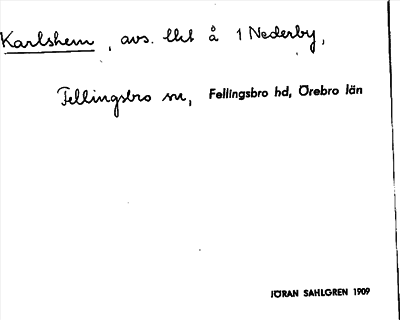 Karlshem, avs. lht å 1 Nederby,
Fellingsbro sn, Fellingsbro hd, Örebro län
JÖRAN SAHLGREN 1909